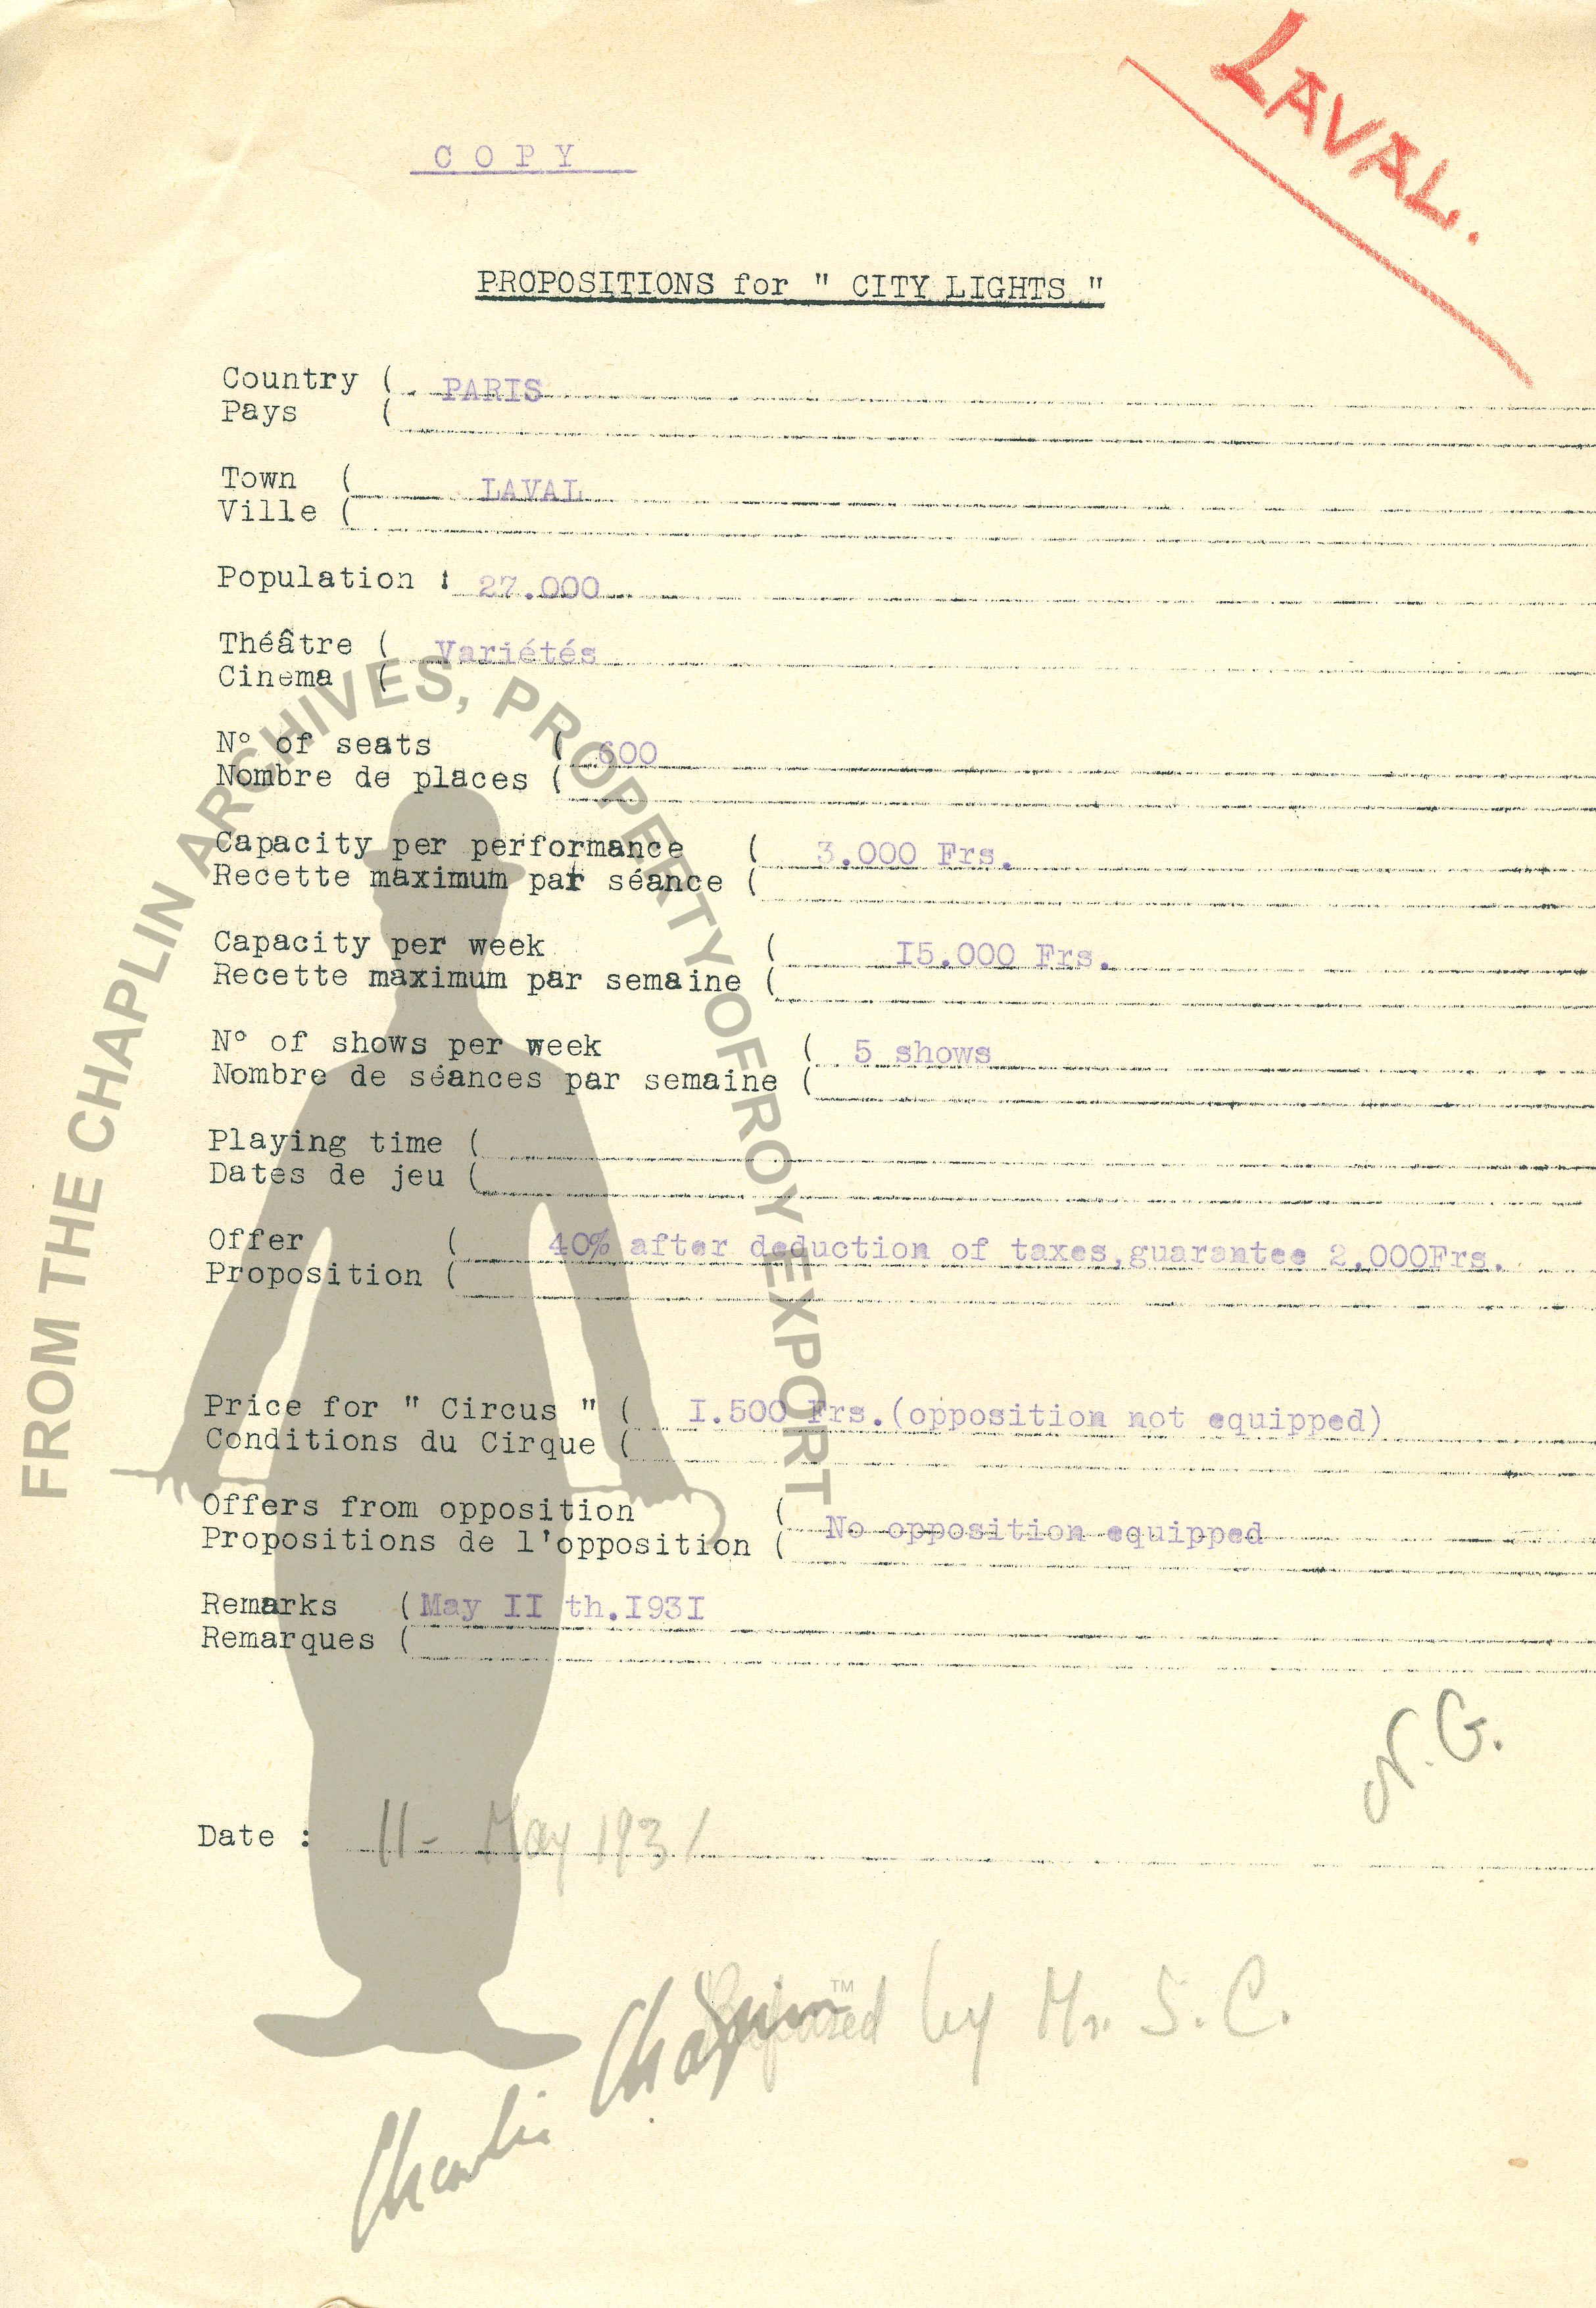 LAVAL.
COPY
PROPOSITIONS for " CITY LIGHTS "
Country ( PARIS
Pays (
Town ( LAVAL
Ville (
Population : 27.000
Théâtre ( Variétés
Cinema (
N° of seats ( 600
Nombre de places (
Capacity per performance ( 3.000 Frs.
Recette maximum par séance (
Capacity per week ( I5.000 Frs.
Recette maximum par semaine (
N° of shows per week ( 5 shows
Nombre de séances par semaine (
Playing time (
Dates de jeu (
Offer ( 40% after deduction of taxes,guarantee 2.000Frs.
Proposition (
Price for " Circus " ( I.500 Frs.(opposition not equipped)
Conditions du Cirque (
Offers from opposition (
Propositions de l'opposition ( No opposition equipped
Remarks ( May II th.I93I
Remarques (
N.G.
Date : 11- May 1931
Refused by Mr. S.C.
Charlie Chaplin
TM
FROM THE CHAPLIN ARCHIVES, PROPERTY OF ROY EXPORT